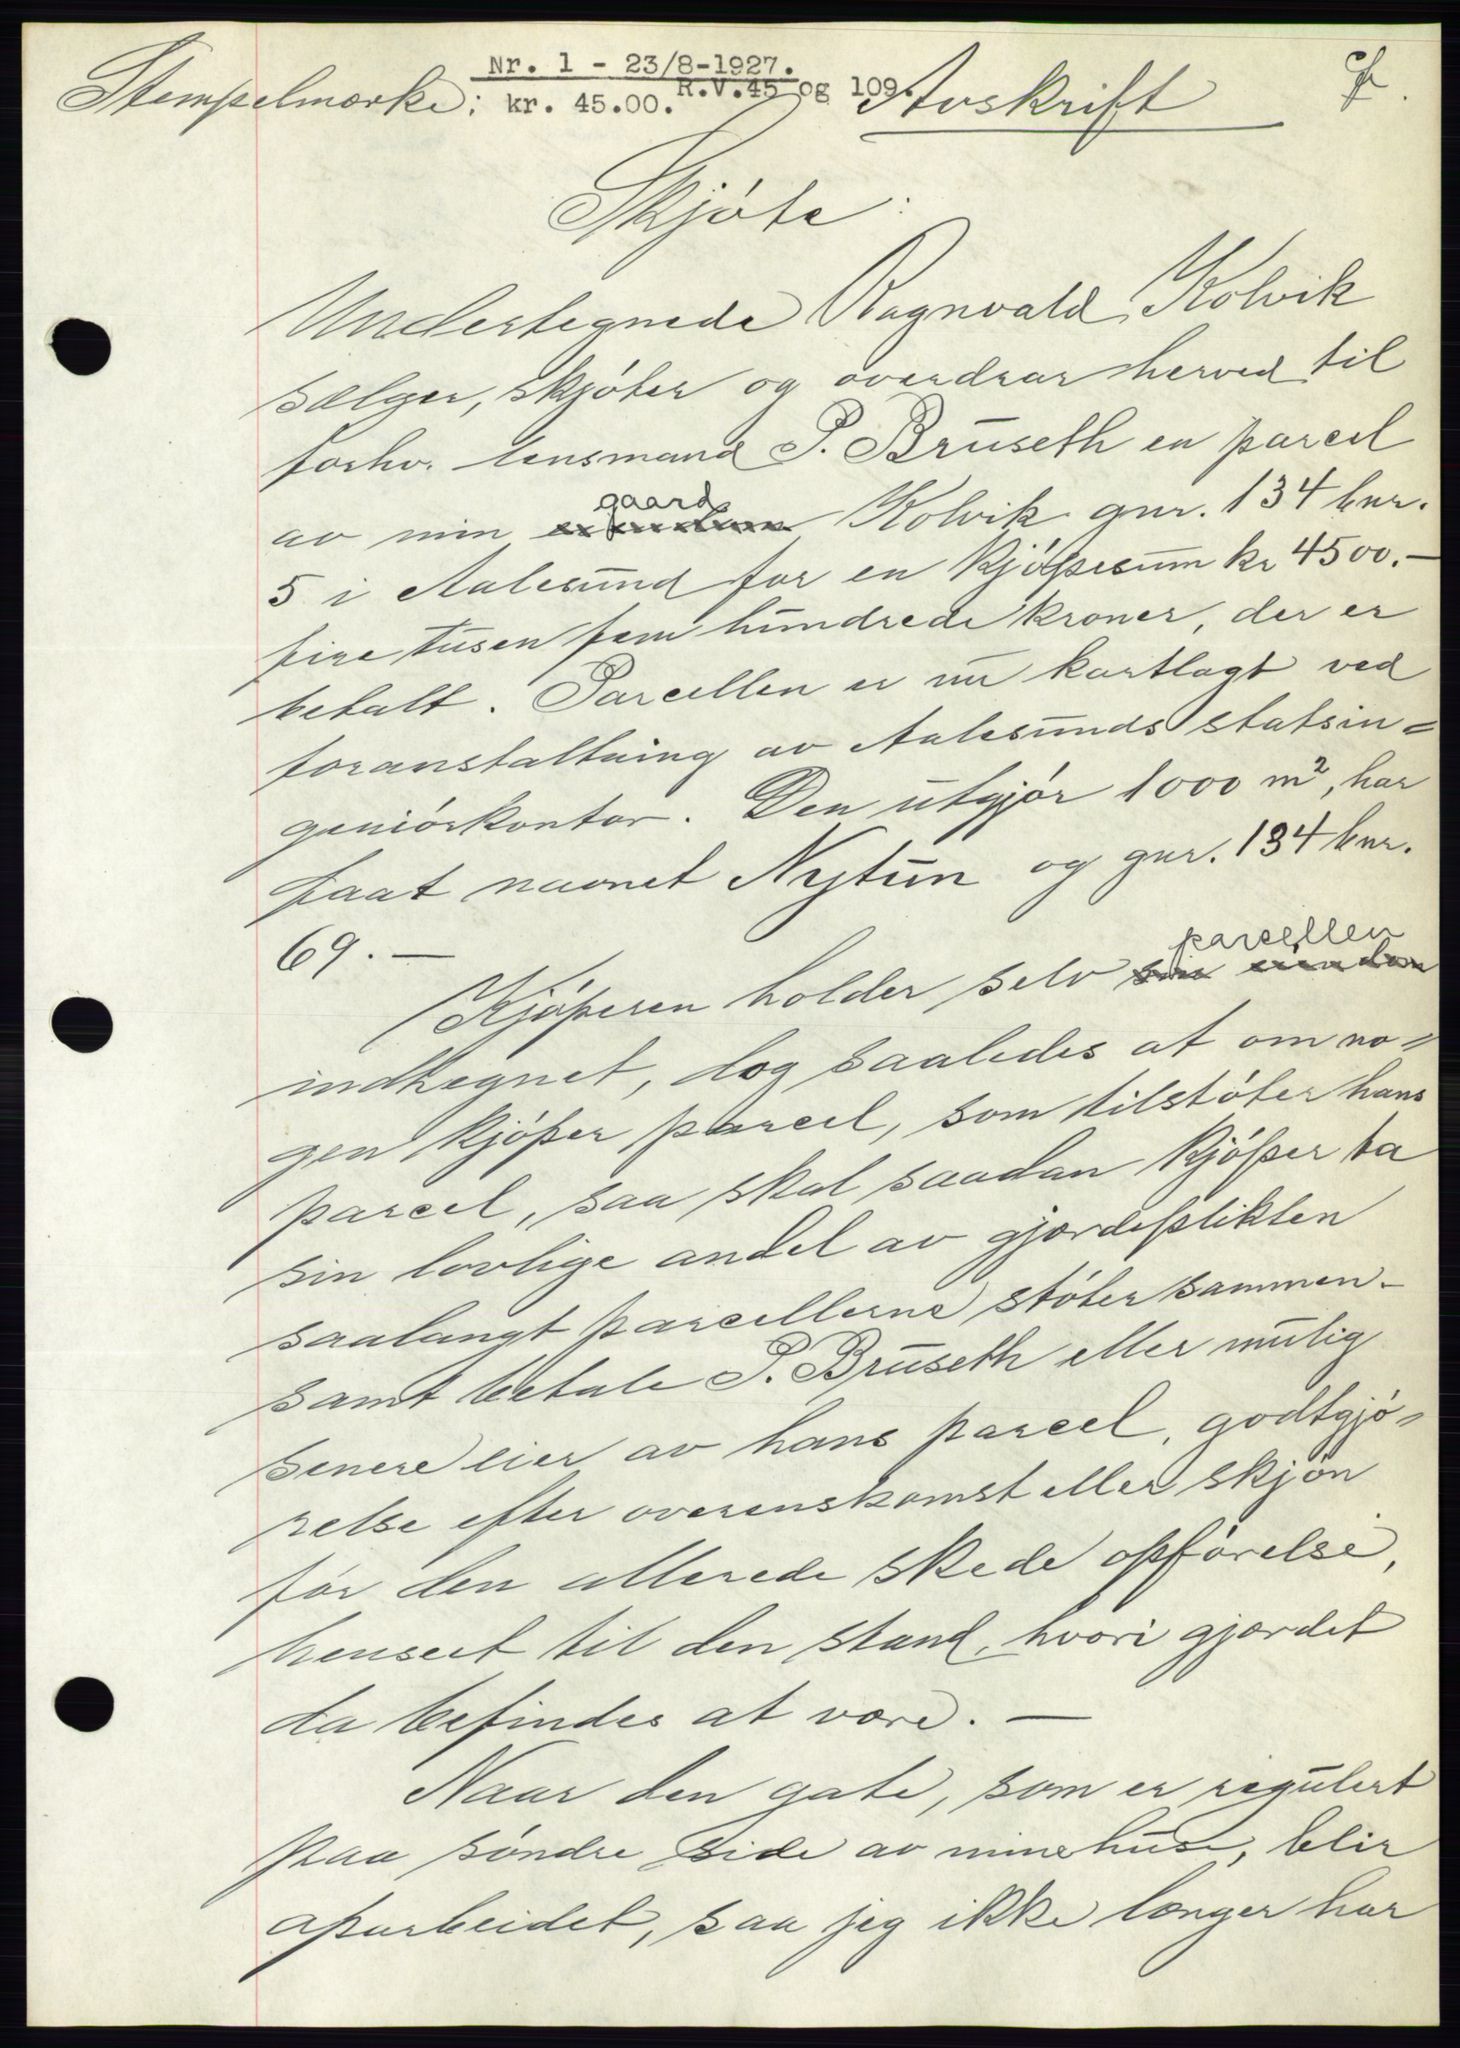 Nr. 1 - 23/8-1927.
Stempelmærke: kr. 45.00. R.V.45 og 109. Avskrift
Skjöte:
Undertegnede Ragnvald Kolvik
sælger, skjöter og overdrar herved til
forhv. lensmand P. Bruseth en parcel
gaard
av min eiendom Kolvik gnr. 134 bnr.
5 i Aalesund for en kjöpesum kr 4500.-
fire tusen fem hundrede kroner, der er
betalt. Parcellen er nu kartlagt ved
foranstaltning av Aalesunds statsin=
geniörkontor. Den utgjör 1000 m², har
faat navnet Nytun og gnr. 134 bnr.
69. -
parcellen
Kjöperen holder selv sin eiendom
indhegnet, dog saaledes at om no=
gen kjöper parcel, som tilstöter hans
parcel, saa skal saadan kjöper ta
sin lovlige andel av gjærdeplikten
saalangt parcellerne stöter sammen-
samt betale P. Bruseth eller mulig
senere eier av hans parcel, godtgjö=
relse efter overenskomst eller skjön
för den allerede skede opförelse,
henseet til den stand, hvori gjærdet
da befindes at være. -
Naar den gate, som er regulert
paa söndre side av mine huse, blir
oparbeidet, saa jeg ikke længer har